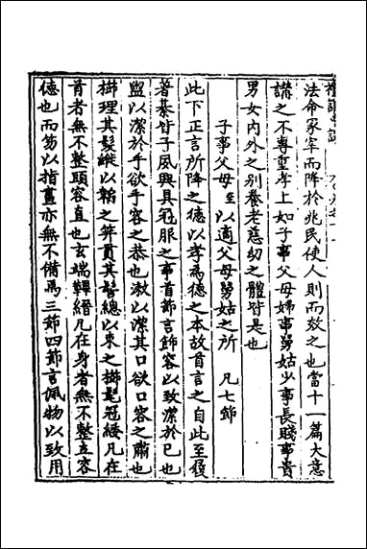 法命冢宰而降於兆民使人則而效之也當十一篇大意
講之不專重孝上如子事父母婦事舅姑少事長賤事貴
男女内外之别養老慈幼之體皆是也
子事父母至以適父母舅姑之所 凡七節
此下正言所降之德以孝為德之本故首言之自此至後
著綦皆子夙興具冠服之事首節言飾容以致潔於已也
盥以潔於手欲手容之恭也漱以潔其口欲口容之肅也
櫛理其髮縰以韜之笄貫其髻總以束之拂髦冠緌凡在
首者無不整頭容直也玄端鞸紳凡在身者無不整立容
德也而笏以指畫亦無不備焉三節四節言佩物以致用